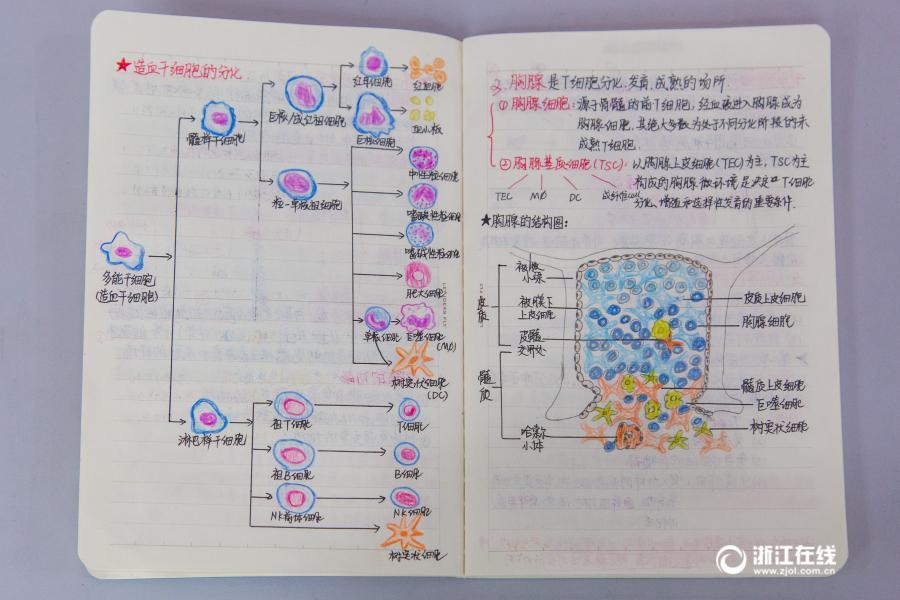 ★造血干细胞的分化:
红母细胞
红血胞
髓样干细胞
巨核/成红祖细胞
巨核细胞
血小板
中性粒细胞
粒-单核祖细胞
嗜酸性粒细胞
嗜碱性粒细胞
多能干细胞
(造血干细胞)
肥大细胞
单核细胞
巨噬细胞
(Mφ)
树突状细胞
(DC)
淋巴样干细胞
祖T细胞
T细胞
祖B细胞
B细胞
NK前体细胞
NK细胞
树突状细胞
2. 胸腺 是T细胞分化.发育.成熟的场所.
① 胸腺细胞: 源于骨髓的前T细胞, 经血液进入胸腺成为
胸腺细胞, 其绝大多数为处于不同分化阶段的未
成熟T细胞.
② 胸腺基质细胞(TSC): 以胸腺上皮细胞(TEC)为主, TSC为主
构成的胸腺微环境是决定T细胞
分化、增殖和选择性发育的重要条件.
TEC Mφ DC
★胸腺的结构图:
皮质
被膜
小梁
被膜下
上皮细胞
皮髓
交界处
髓质
哈氏
小体
皮质上皮细胞
胸腺细胞
髓质上皮细胞
巨噬细胞
树突状细胞
浙江在线
www.zjol.com.cn